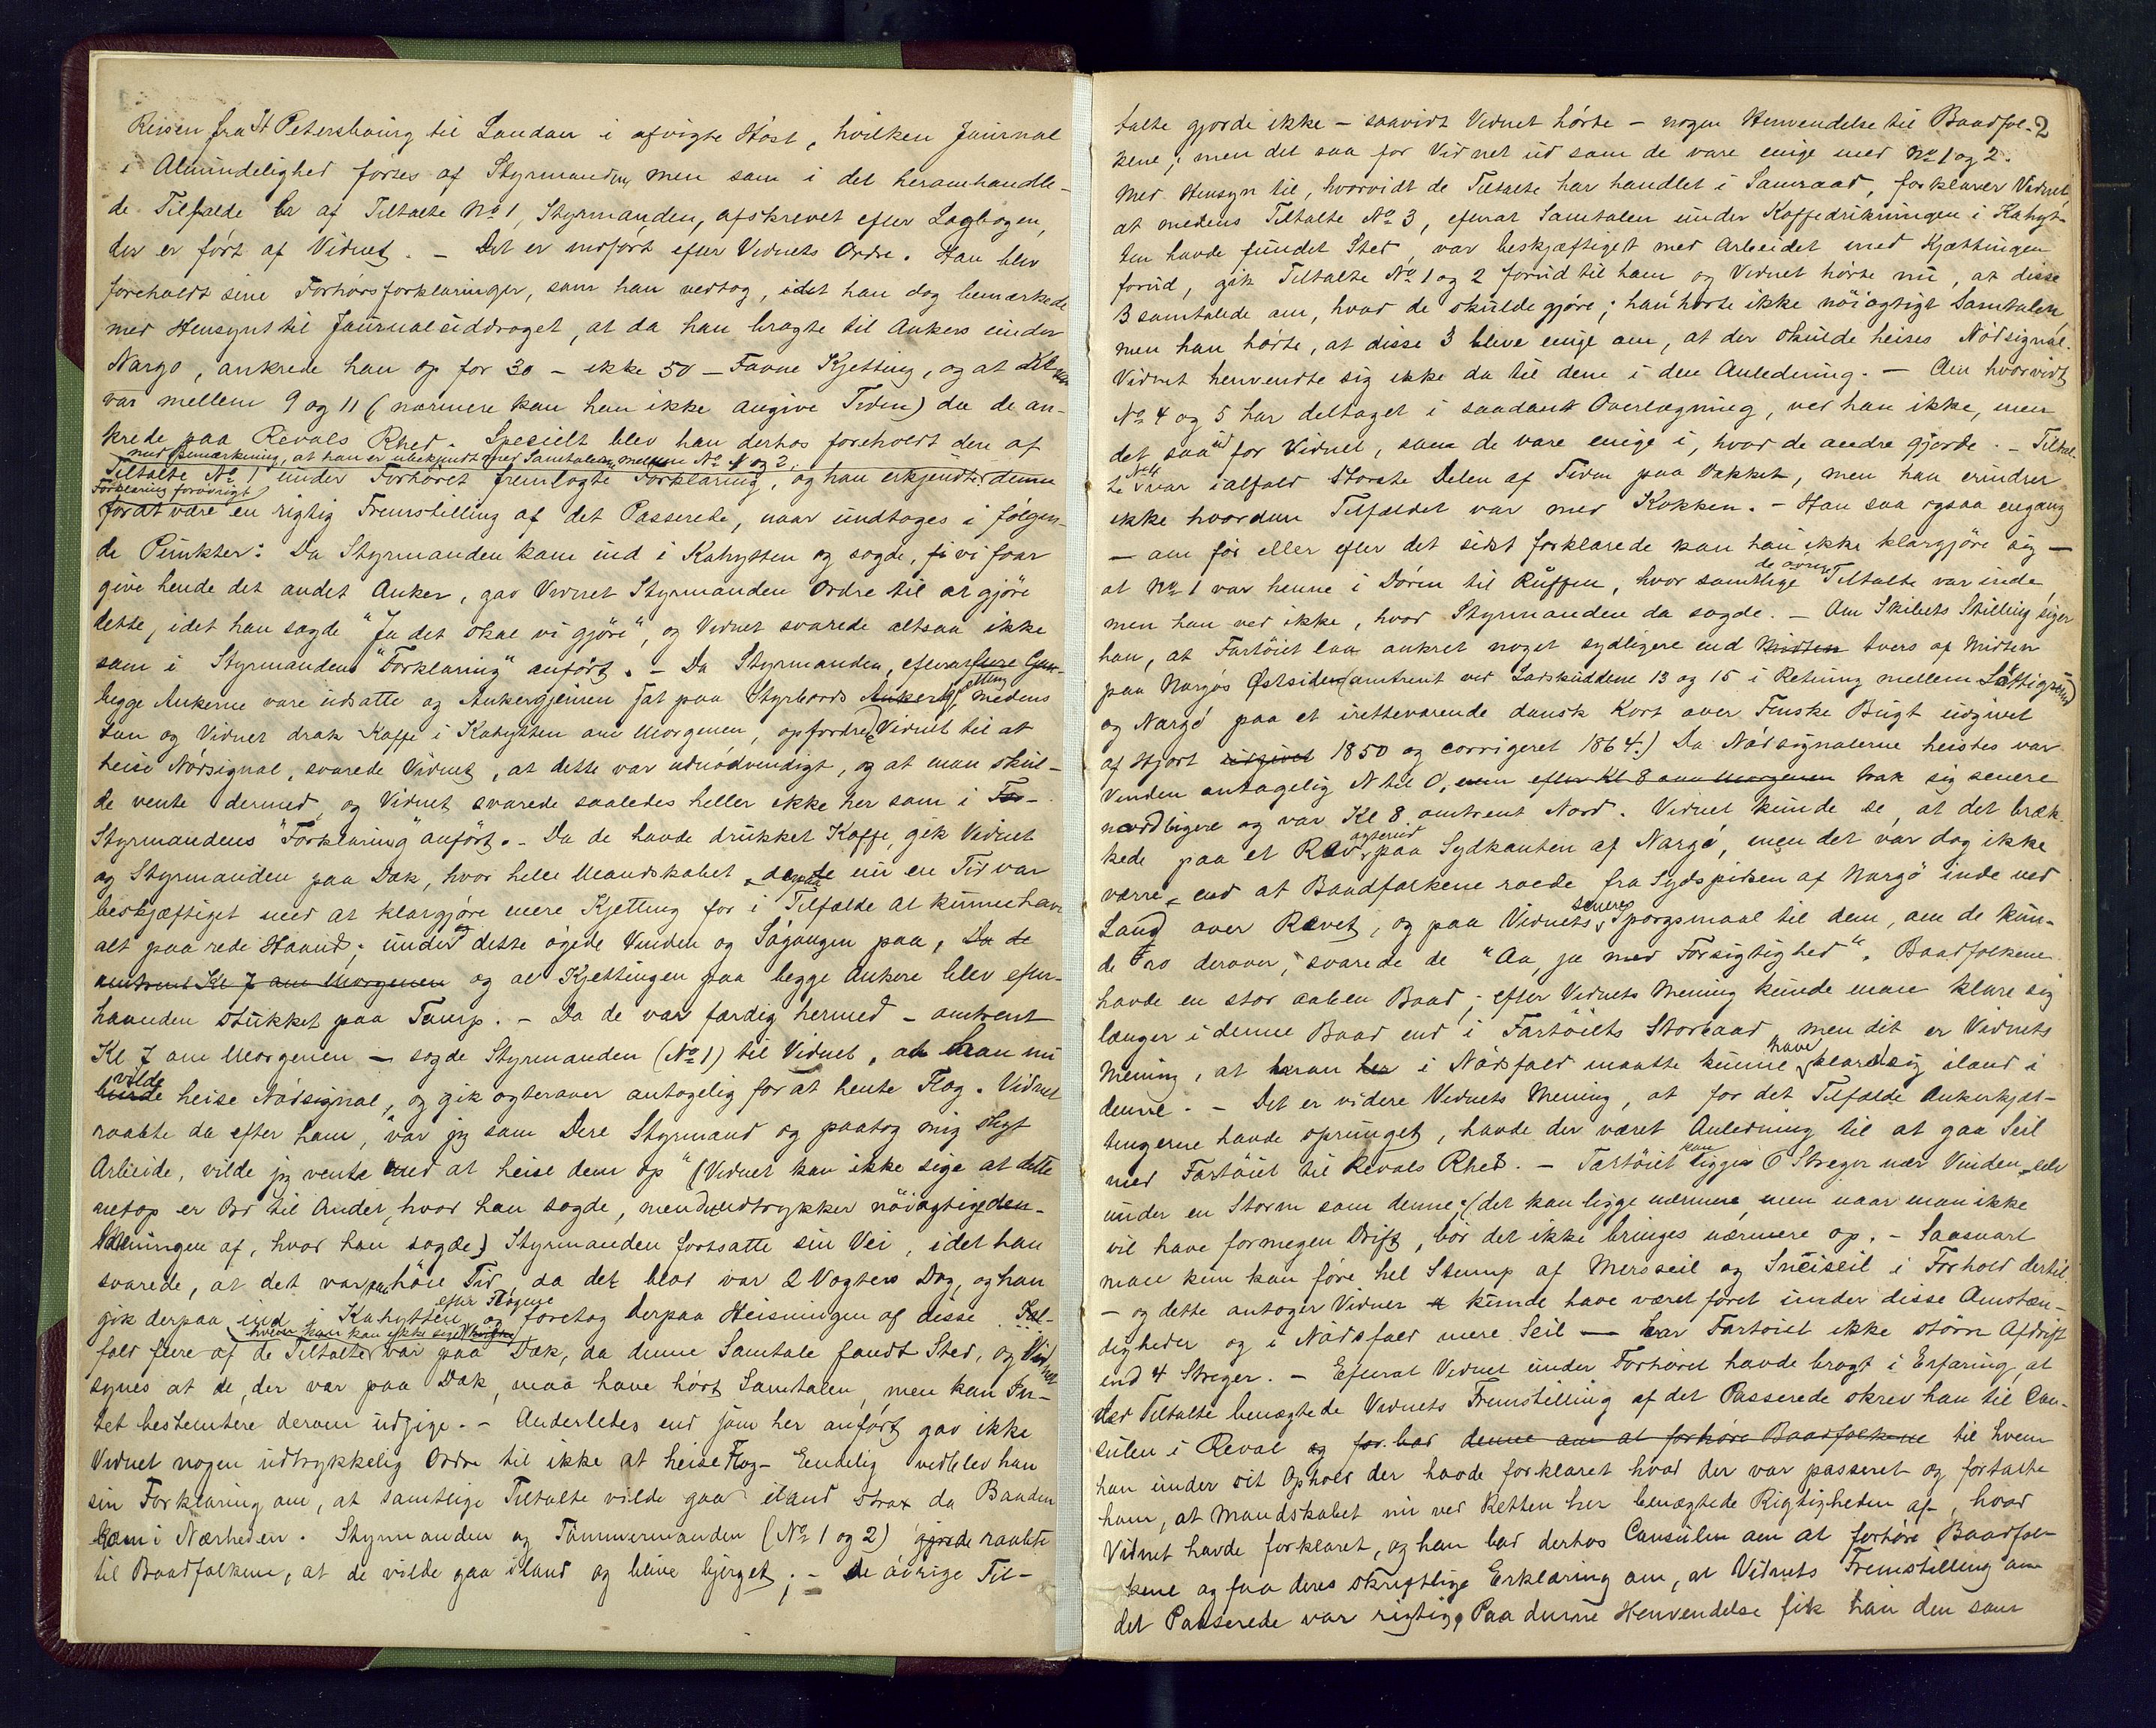 Reisen fra St Petersbourg til London i afvigte Høst, hvilken Journal
i Almindelighed føres af Styrmanden, men som i det heromhandle-
de Tilfælde er af Tiltalte No 1, Styrmanden, afskrevet efter Logbogen,
der er ført af Vidnet. - Det er indført efter Vidnets Ordre. Han blev
foreholdt sine Forhørsforklaringer, som han vedtog, idet han dog bemærkede
med Hensyn til Journaluddraget, at da han bragte til Ankers under
Nargø, ankrede han op for 30 - ikke 50 - Favne Kjetting, og at Kl
var mellem 9 og 11 (nærmere kan han ikke angive Tiden) da de an-
krede paa Revals Rhed. Specielt blev han derhos foreholdt den af
med Bemærkning, at han er ubekjendt med Samtalen mellem No 1 og 2.
Tiltalte No 1 under Forhøret fremlagte Forklaring, og han erkjendte denne
Forklaring forøvrigt
for at være en rigtig Fremstilling af det Passerede, naar undtages i følgen-
de Punkter: Da Styrmanden kom ind i Kahytten og sagde, vi faar
give hende det andet Anker, gav Vidnet Styrmanden Ordre til at gjøre
dette, idet han sagde "Ja det skal vi gjøre", og Vidnet svarede altsaa ikke
som i Styrmandens "Forklaring" anført. - Da Styrmanden, efterat
begge Ankerne vare udsatte og Ankergjeinen sat paa Styrbords Ankerkjetting, medens
han og Vidnet drak Kaffe i Kahytten om Morgenen, opfordrede Vidnet til at
heise Nødsignal, svarede Vidnet, at dette var unødvendigt, og at man skul-
de vente dermed, og Vidnet svarede saaledes heller ikke her som i For-
Styrmandens "Forklaring" anført. - Da de havde drukket Kaffe, gik Vidnet
og Styrmanden paa Dæk, hvor hele Mandskabet nu en Tid var
beskjæftiget med at klargjøre mere Kjetting for i Tilfælde at kunne have
alt paa rede Haand; under dette øgede Vinden og Søgangen paa, Da de
omtrent Kl 7 om Morgenen og al Kjettingen paa begge Ankere blev efter-
haanden stukket paa Tamp. - Da de var færdig hermed - omtrent
Kl 7 om Morgenen - sagde Styrmanden (No 1) til Vidnet, at han nu
vilde
burde heise Nødsignal, og gik agterover antagelig for at hente Flag. Vidnet
raabte da efter ham, "var jeg som Dere Styrmand og paatog mig sligt
Arbeide, vilde jeg vente med at heise dem op" (Vidnet kan ikke sige at dette
netop er Ord til andet, hvad han sagde, men det udtrykker nøiagtig den
Meningen af, hvad han sagde) Styrmanden fortsatte sin Vei, idet han
svarede, at det var paa høie Tid, da det blot var 2 Vagters Dag, og han
gik derpaa ind i Kahytten efter Flagene og foretog derpaa Heisningen af disse. Ial-
fald flere af de Tiltalte (hvem kan han ikke sige) var paa Dæk, da denne Samtale fandt Sted, og Vidnet
synes at de, der var paa Dæk, maa have hørt Samtalen, men kan In-
tet bestemtere derom udsige. - Anderledes end som her anført gav ikke
Vidnet nogen udtrykkelig Ordre til ikke at heise Flag - Eendelig vedblev han
sin Forklaring om, at samtlige Tiltalte vilde gaa iland strax da Baaden
kom i Nærheden. Styrmanden og Tømmermanden (No 1 og 2) gjorde raabte
til Baadfolkene, at de vilde gaa iland og blive bjerget; - de øvrige Til-
2
talte gjorde ikke - saavidt Vidnet hørte - nogen Henvendelse til Baadfol-
kene; men det saa for Vidnet ud som de vare enige med No 1 og 2.
Med Hensyn til, hvorvidt de Tiltalte har handlet i Samraad, forklarer Vidnet,
at medens Tiltalte No 3, efterat Samtalen under Kaffedrikningen i Kahyt-
ten havde fundet Sted, var beskjæftiget med Arbeidet med Kjættingen
forud, gik Tiltalte No 1 og 2 forud til ham og Vidnet hørte nu, at disse
3 samtalede om, hvad de skulde gjøre; han hørte ikke nøiagtigt Samtalen,
men han hørte, at disse 3 bleve enige om, at der skulde heises Nødsignal.
Vidnet henvendte sig ikke da til dem i den Anledning. - Om hvorvidt
No 4 og 5 har deltaget i saadan Overlægning, ved han ikke, men
det saa ud for Vidnet, som de vare enige i, hvad de andre gjorde. - Tiltal-
te No 4 var ialfald største Delen af Tiden paa Dækket, men han erindrer
ikke hvordan Tilfældet var med Kokken. - Han saa ogsaa engang
- om før eller efter det sidst forklarede kan han ikke klargjøre sig -
at No 1 var henne i Døren til Ruffen, hvor samtlige de øvrige Tiltalte var inde,
men han ved ikke, hvad Styrmanden da sagde. - Om Skibets Stilling siger
han, at Fartøiet laa ankret noget sydligere end Midten tvers af Midten
paa Nargøs Østside (omtrent ved Lodskuddene 13 og 15 i Retning mellem
og Nargø paa et iretteværende dansk Kort over Finske Bugt udgivet
af Hjort udgivet 1850 og corrigeret 1864.) Da Nødsignalerne heistes var
Vinden antagelig N til O, men efter Kl 8 om Morgenen trak sig senere
nordligere og var Kl 8 omtrent Nord. Vidnet kunde se, at det bræk-
kede paa et Rev agterud paa Sydkanten af Nargø, men det var dog ikke
værre end at Baadfolkene roede fra Sydspidsen af Nargø inde ved
Land over Revet, og paa Vidnets senere Spørgsmaal til dem, om de kun-
de ro derover, svarede de "Aa, ja med Forsigtighed". Baadfolkene
havde en stor aaben Baad; efter Vidnets Mening kunde man klare sig
længer i denne Baad end i Fartøiets Storbaad, men dit er Vidnets
Mening, at man her i Nødsfald maatte kunne have klaret sig iland i
denne. - Det er videre Vidnets Mening, at for det Tilfælde Ankerkjæt-
tingerne havde sprunget, havde der været Anledning til at gaa Seil
med Fartøiet til Revals Rhed. - Fartøiet kan ligge 6 Streger nær Vinden selv
under en Storm som denne; (det kan ligge nærmere, men naar man ikke
vil have formegen Drift, bør det ikke bringes nærmere op. - Saasnart
man kun kan føre hel Stump af Mersseil og Sneiseil i Forhold dertil,
- og dette antager Vidnet kunde have været ført under disse Omstæn-
digheder og i Nødsfald mere Seil - har Fartøiet ikke større Afdrift
end 4 Streger. - Efterat Vidnet under Forhøret havde bragt i Erfaring, at
de Tiltalte benægtede Vidnets Fremstilling af det Passerede skrev han til Con-
sulen i Reval og for bad denne om at forhøre Baadfolkene til hvem
han under sit Ophold der havde forklaret hvad der var passeret og fortalte
ham, at Mandskabet nu ved Retten her benægtede Rigtigheden af, hvad
Vidnet havde forklaret, og han bad derhos Consulen om at forhøre Baadfol-
kene og faa deres skriftlige Erklæring om, at Vidnets Fremstilling om
det Passerede var rigtig. Paa denne Henvendelse fik han den som